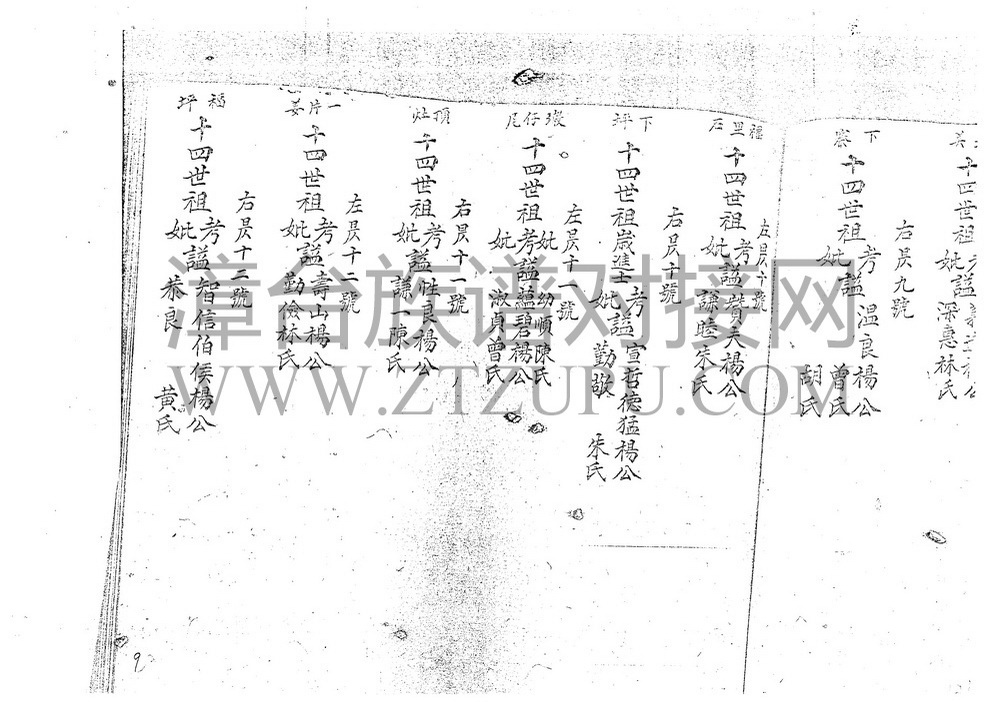 十四世祖
妣謚
梁惠林氏
下寮
右昃九號
十四世祖
考
妣
謚
溫良楊公
曾氏
胡氏
福里石
左昃十號
十四世祖
考謚贊夫楊公
妣謙睦朱氏
下坪
右昃十號
十四世祖歲進士
考謚宣哲德猛楊公
妣勤敬朱氏
墩仔尾
左昃十一號
十四世祖
妣幼順陳氏
考謚蘊碧楊公
妣淑貞曾氏
頂灶
右昃十一號
十四世祖
考謚性良楊公
妣謙一陳氏
一片姜
左昃十二號
十四世祖
考謚壽山楊公
妣勤儉林氏
福坪
右昃十二號
十四世祖
考謚智信伯侯楊公
妣恭良黃氏
9
漳台族谱对接网
WWW.ZTZUPU.COM